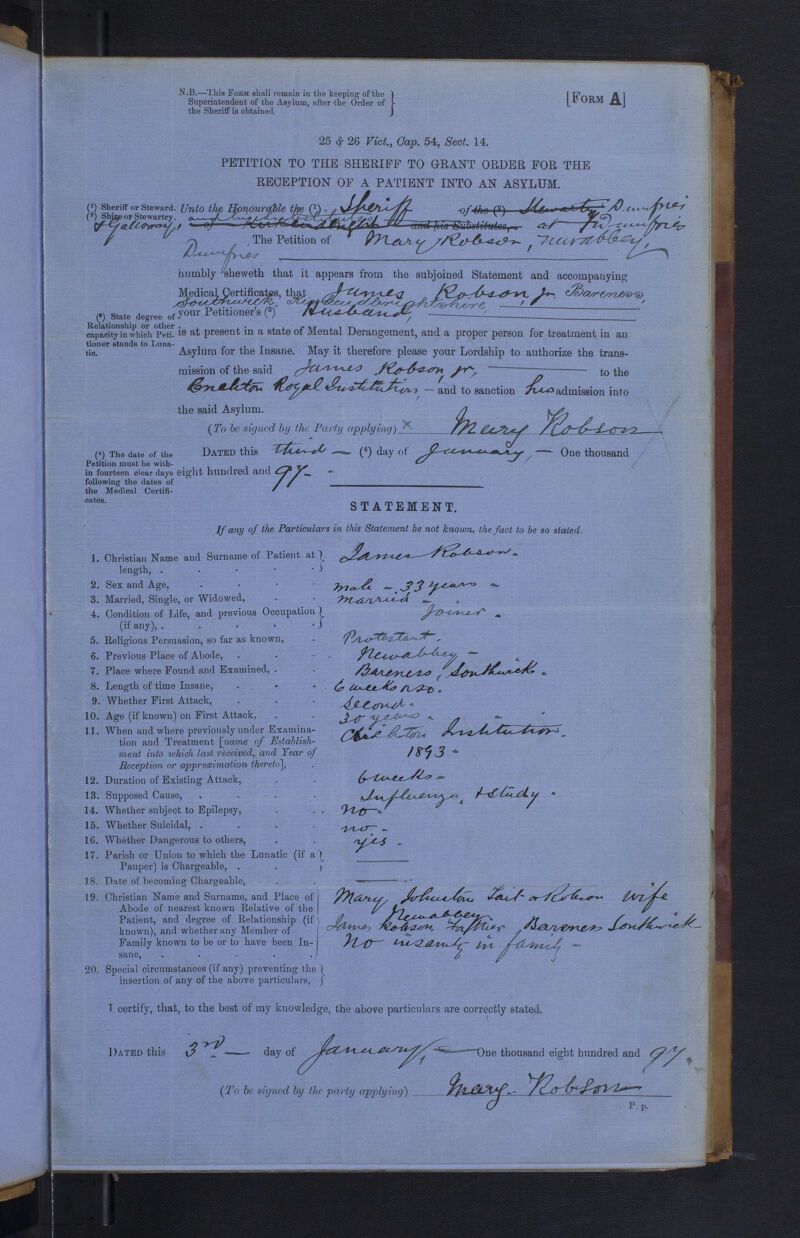 N.B.—This Form shall remain in the keeping of the
Superintendent of the Asylum, after the Order of
the Sheriff is obtained.
[Form A]
25 & 26 Vict., Cap. 54, Sect. 14.
PETITION TO THE SHERIFF TO GRANT ORDER FOR THE
RECEPTION OF A PATIENT INTO AN ASYLUM.
(¹) Sheriff or Steward.
(²) Shire or Stewartry.
Unto the Honourable the (¹) Sheriff of the (²) Stewartry Dumfries
& Galloway, and his Substitutes at Dumfries
of Kirkcudbright and his Substitutes,
The Petition of Mary Robson, Newabbey,
Dumfries
humbly sheweth that it appears from the subjoined Statement and accompanying
Medical Certificates, that James Robson, Jr, Bareness,
Southwick, Kirkcudbrightshire,
(³) State degree of
Relationship or other
capacity in which Peti-
tioner stands to Luna-
tic.
your Petitioner's (³) Husband,
is at present in a state of Mental Derangement, and a proper person for treatment in an
Asylum for the Insane. May it therefore please your Lordship to authorize the trans-
mission of the said James Robson, Jr, to the
Crichton Royal Institution, — and to sanction his admission into
the said Asylum.
(To be signed by the Party applying) x Mary Robson x
(⁴) The date of the
Petition must be with-
in fourteen clear days
following the dates of
the Medical Certifi-
cates.
Dated this third — (⁴) day of January, — One thousand
eight hundred and 97 - -
STATEMENT.
If any of the Particulars in this Statement be not known, the fact to be so stated.
1. Christian Name and Surname of Patient at
length, . James Robson -
2. Sex and Age, male - 33 years -
3. Married, Single, or Widowed, married -
4. Condition of Life, and previous Occupation
(if any), . Joiner -
5. Religious Persuasion, so far as known, Protestant -
6. Previous Place of Abode, Newabbey -
7. Place where Found and Examined, . Bareness, Southwick -
8. Length of time Insane, 6 weeks or so.
9. Whether First Attack, Second -
10. Age (if known) on First Attack, 30 years -
11. When and where previously under Examina-
tion and Treatment [name of Establish-
ment into which last received, and Year of
Reception or approximation thereto],
Crichton Institution.
1893 -
12. Duration of Existing Attack, 6 weeks -
13. Supposed Cause, Influenza, & Study -
14. Whether subject to Epilepsy, no -
15. Whether Suicidal, . no -
16. Whether Dangerous to others, yes -
17. Parish or Union to which the Lunatic (if a
Pauper) is Chargeable, . ——
18. Date of becoming Chargeable, ——
19. Christian Name and Surname, and Place of
Abode of nearest known Relative of the
Patient, and degree of Relationship (if
known), and whether any Member of
Family known to be or to have been In-
sane,
Mary Johnston Tait or Robson wife
Newabbey.
James Robson Father, Bareness Southwick
No insanity in family -
20. Special circumstances (if any) preventing the
insertion of any of the above particulars,
I certify, that, to the best of my knowledge, the above particulars are correctly stated.
Dated this 3rd — day of January, — One thousand eight hundred and 97.
(To be signed by the party applying) Mary Robson
P. p.